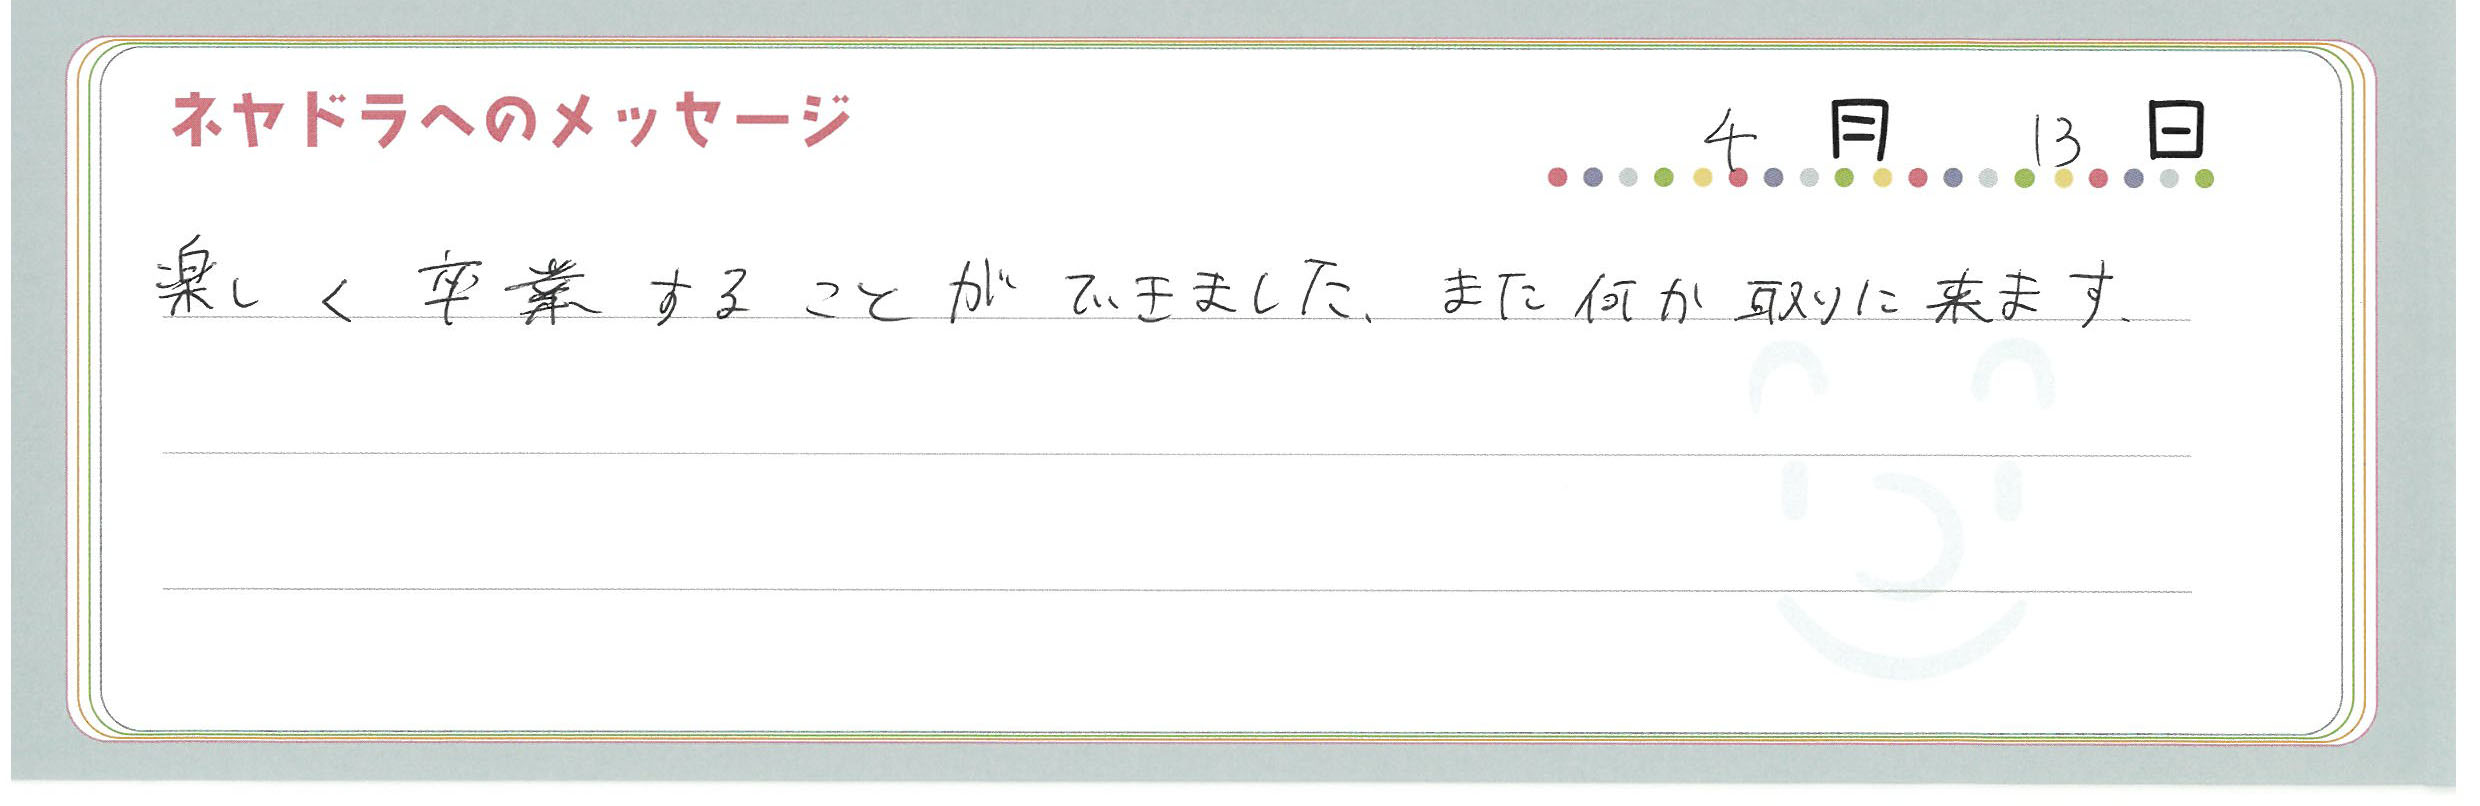 ネヤドラへのメッセージ
4月 13日
楽しく卒業することができました、また何か取りに来ます.